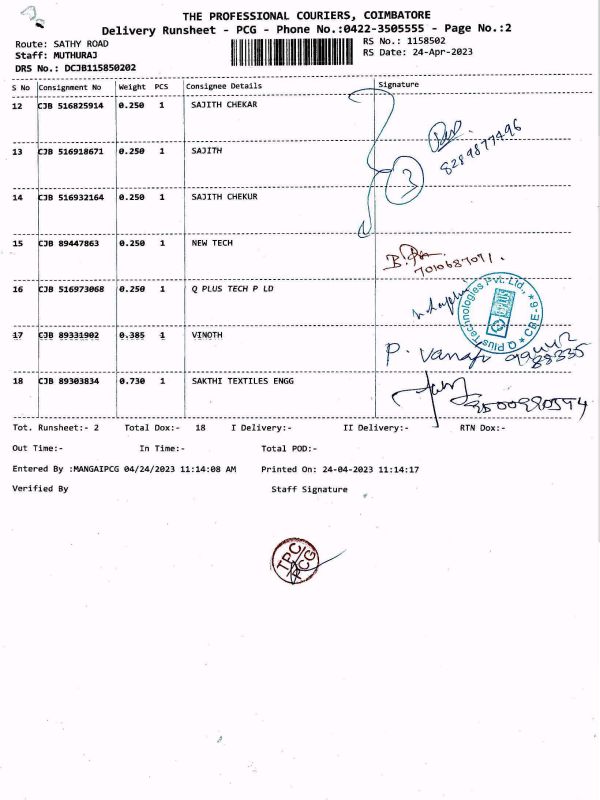 THE PROFESSIONAL COURIERS, COIMBATORE
Delivery Runsheet - PCG - Phone No.:0422-3505555 - Page No.:2
Route: SATHY ROAD
Staff: MUTHURAJ
DRS No.: DCJB115850202
RS No.: 1158502
RS Date: 24-Apr-2023
S No Consignment No Weight PCS Consignee Details Signature
12 CJB 516825914 0.250 1 SAJITH CHEKAR
8289877496
13 CJB 516918671 0.250 1 SAJITH
3
14 CJB 516932164 0.250 1 SAJITH CHEKUR
15 CJB 89447863 0.250 1 NEW TECH
7010687071.
16 CJB 516973068 0.250 1 Q PLUS TECH P LD
Q Plus Technologies Pvt. Ltd., CBE-6
17 CJB 89331902 0.385 1 VINOTH
18 CJB 89303834 0.730 1 SAKTHI TEXTILES ENGG
Tot. Runsheet:- 2 Total Dox:- 18 I Delivery:- II Delivery:- RTN Dox:-
Out Time:- In Time:- Total POD:-
Entered By :MANGAIPCG 04/24/2023 11:14:08 AM Printed On: 24-04-2023 11:14:17
Verified By Staff Signature
TPC
PCG